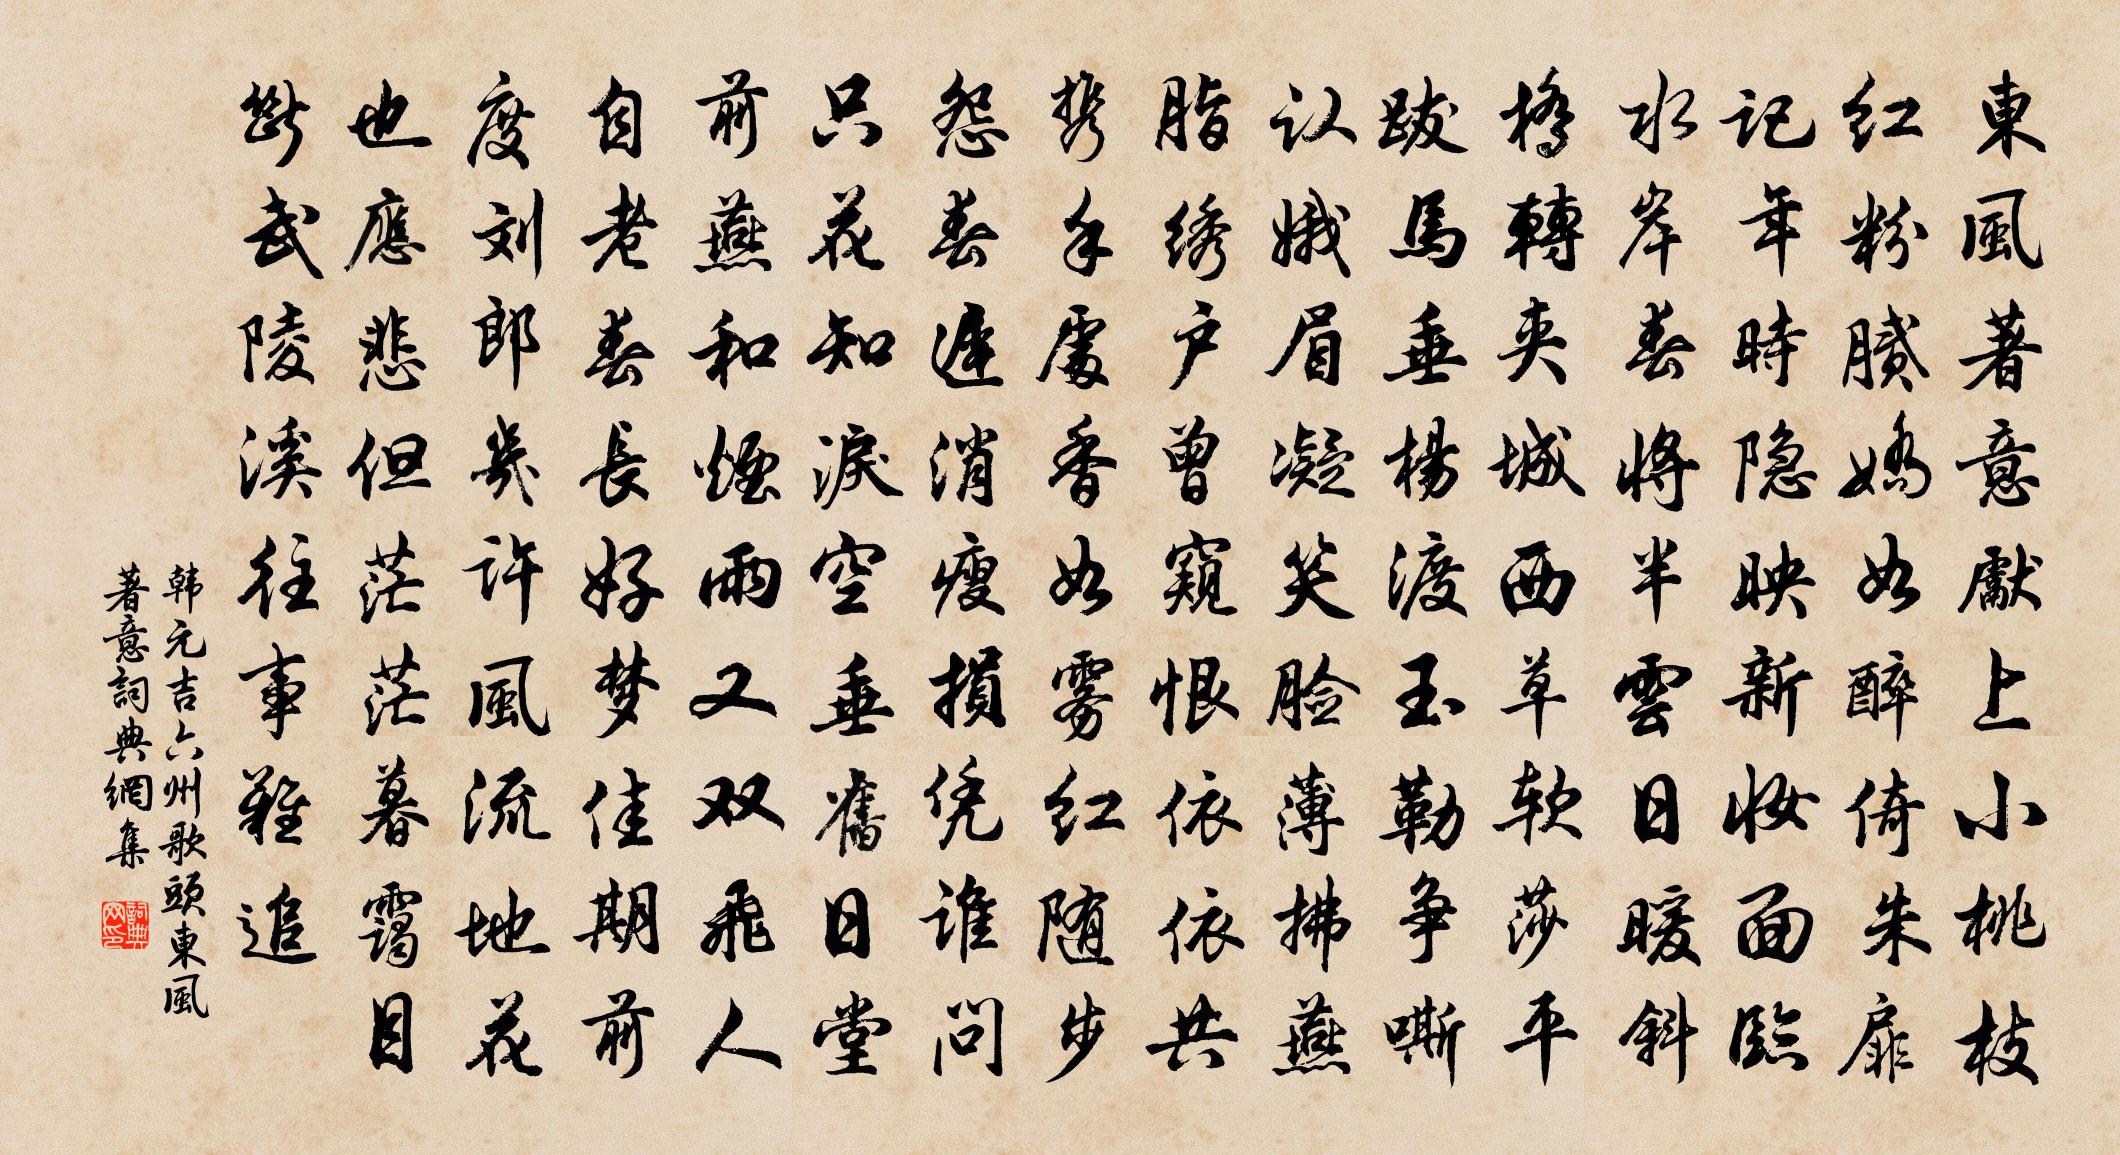 東風著意獻上小桃枝
红粉腻嬌如醉倚朱扉
记年時隐映新妝面臨
水岸春将半雲日暖斜
橋轉夾城西草软莎平
跋馬垂楊渡玉勒争嘶
认娥眉凝笑脸薄拂燕
脂绣户曾窺恨依依共
携手處香如雾红随步
怨春遲消瘦損凭谁問
只花知淚空垂舊日堂
前燕和煙雨又双飛人
自老春長好梦佳期前
度刘郎幾许風流地花
也應悲但茫茫暮靄目
斷武陵溪往事難追
韩元吉六州歌頭東風
著意詞典網集
詞典网印